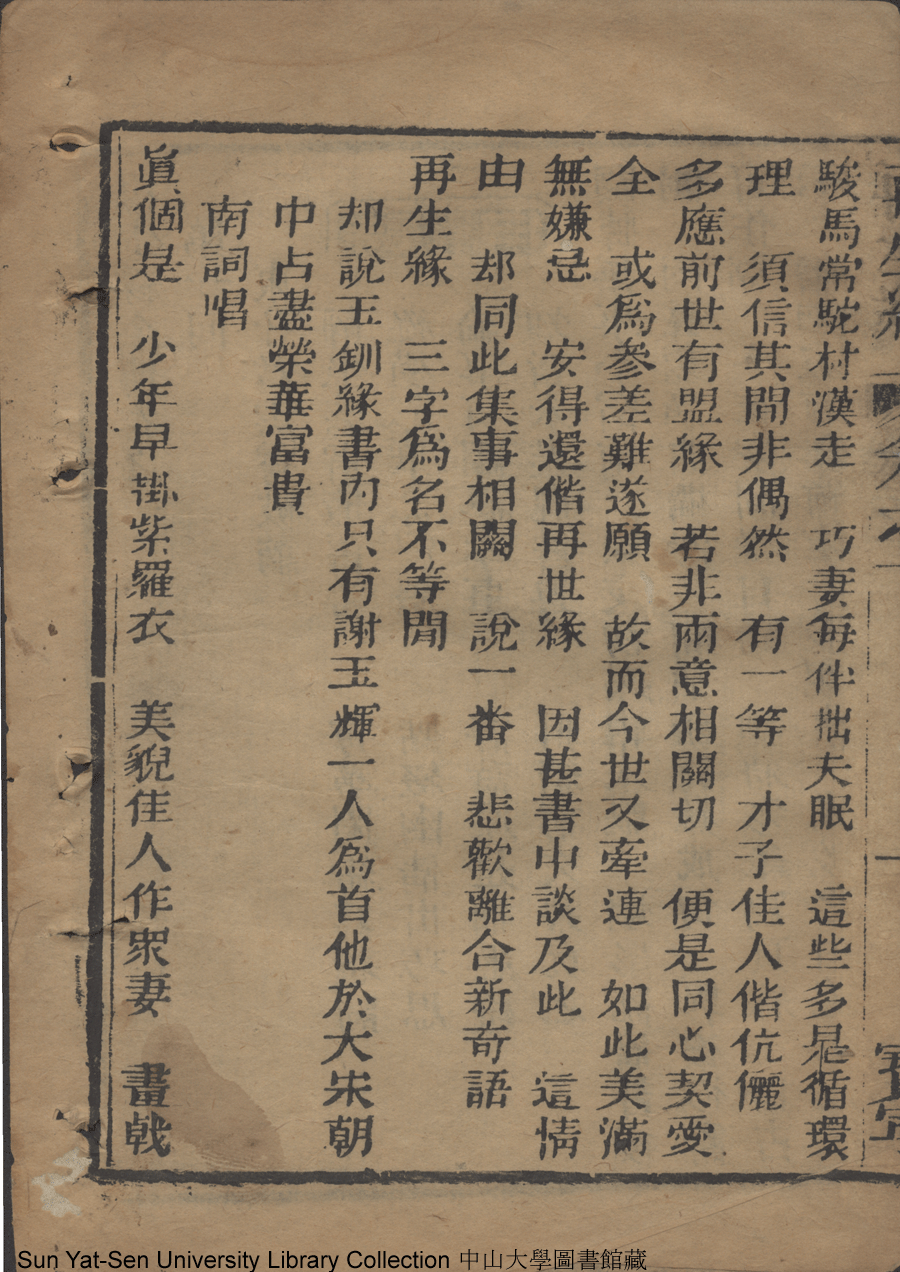 駿馬常駝村漢走　巧妻每伴拙夫眠　這些多是循環
理　須信其間非偶然　有一等　才子佳人偕伉儷
多應前世有盟緣　若非兩意相關切　便是同心契愛
全　或爲參差難遂願　故而今世又牽連　如此美滿
無嫌忌　安得還偕再世緣　因甚書中談及此　這情
由　却同此集事相關　說一番　悲歡離合新奇語
再生緣　三字爲名不等閒
却說玉釧緣書內只有謝玉輝一人爲首他於大宋朝
中占盡榮華富貴
南詞唱
眞個是　少年早掛紫羅衣　美貌佳人作衆妻　畫戟
Sun Yat-Sen University Library Collection 中山大學圖書館藏